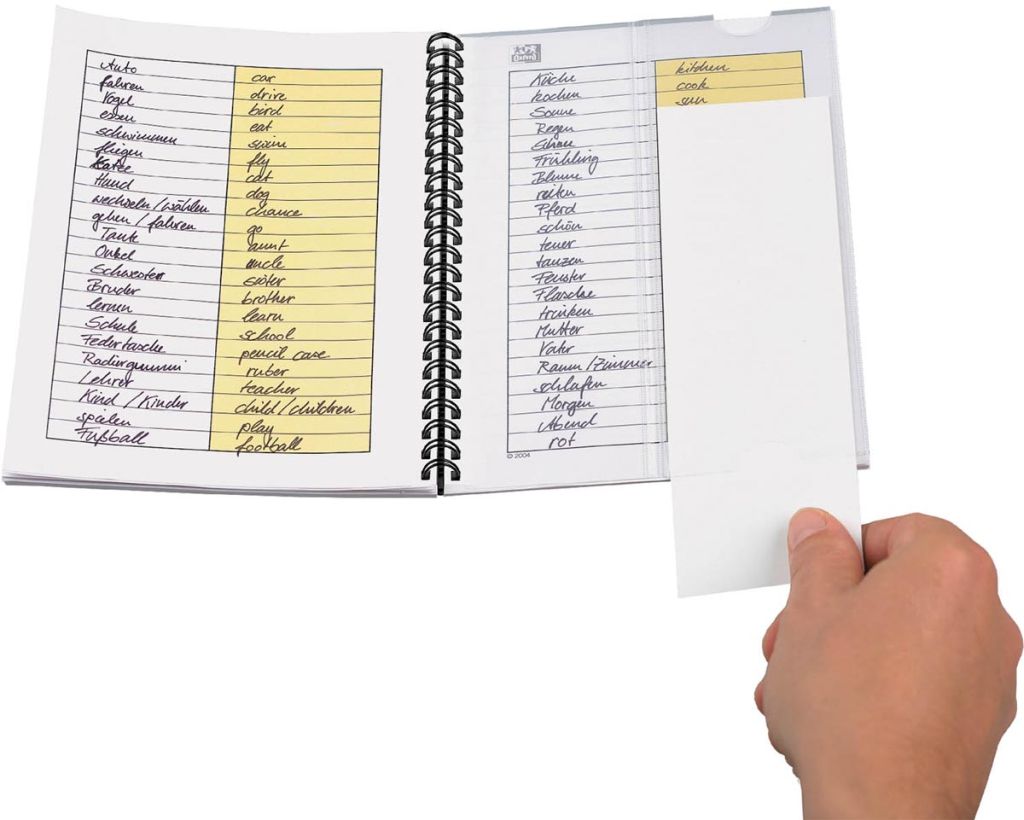 Auto car
fahren drive
Vogel bird
essen eat
schwimmen swim
fliegen fly
Katze cat
Hund dog
wechseln/wählen chance
gehen/fahren go
Tante aunt
Onkel uncle
Schwester sister
Bruder brother
lernen learn
Schule school
Federtasche pencil case
Radiergummi ruber
Lehrer teacher
Kind/Kinder child/children
spielen play
Fußball football
Oxford
Küche kitchen
kochen cook
Sonne sun
Regen
Frühling
Blume
reiten
Pferd
schön
teuer
tanzen
Fenster
Flasche
trinken
Mutter
Vater
Raum/Zimmer
schlafen
Morgen
Abend
rot
© 2004